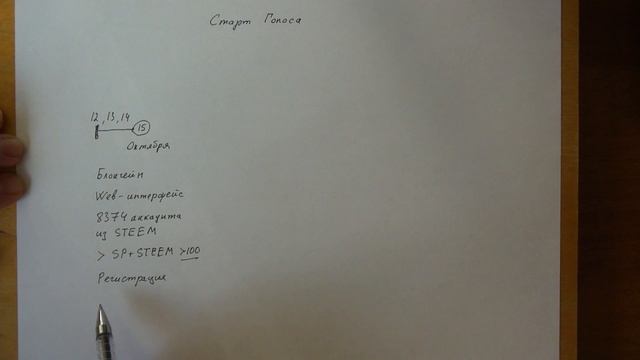 Старт Голоса
12, 13, 14
15
Октября
Блокчейн
Web-интерфейс
8374 аккаунта
из STEEM
> SP+STEEM >100
Регистрация